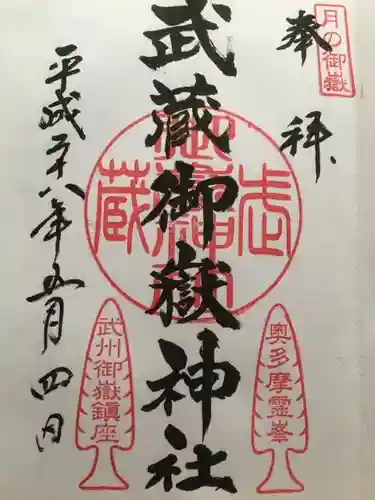 月の御嶽
奉拝
奥多摩霊峯
武蔵御嶽神社
武州御嶽鎮座
平成二十八年五月四日